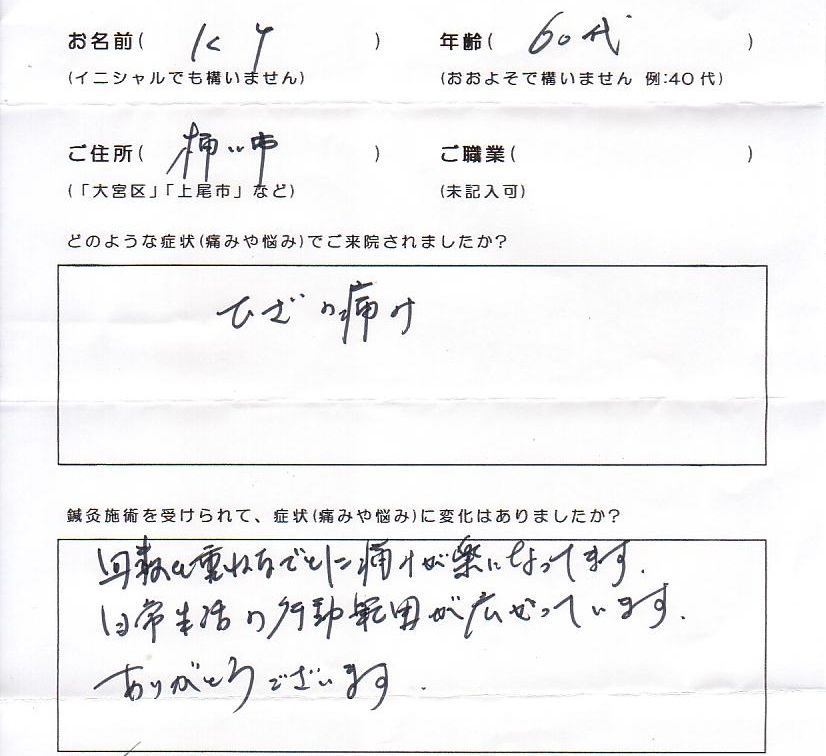 お名前( K Y ) 年齢( 60代 )
(イニシャルでも構いません) (おおよそで構いません 例:40代)
ご住所( 桶川市 ) ご職業( )
(「大宮区」「上尾市」など) (未記入可)
どのような症状(痛みや悩み)でご来院されましたか?
ひざの痛み
鍼灸施術を受けられて、症状(痛みや悩み)に変化はありましたか?
回数を重ねるごとに痛みが楽になってます.
日常生活の行動範囲が広がっています.
ありがとうございます.